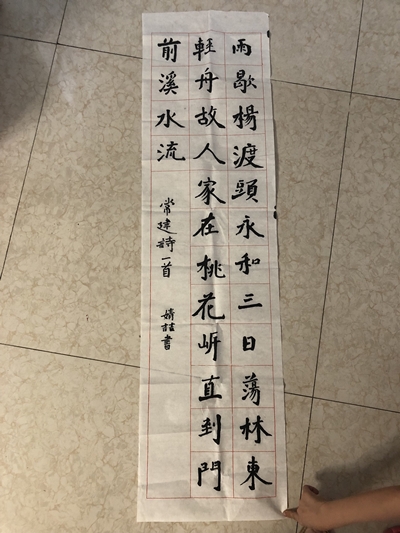 雨歇楊渡頭永和三日蕩林東
輕舟故人家在桃花岍直到門
前溪水流
常建詩一首
書